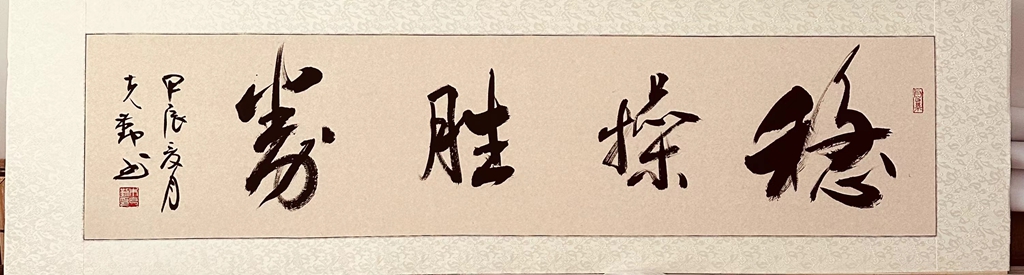 稳操胜券
甲辰夏月
克勤书